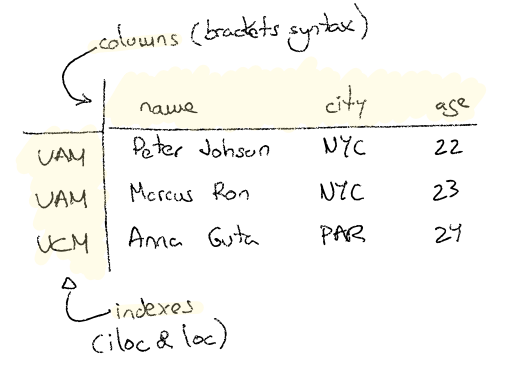 columns (brackets syntax)
name city age
UAM Peter Johson NYC 22
UAM Marcus Ron NYC 23
UCM Anna Guta PAR 24
indexes
(iloc & loc)